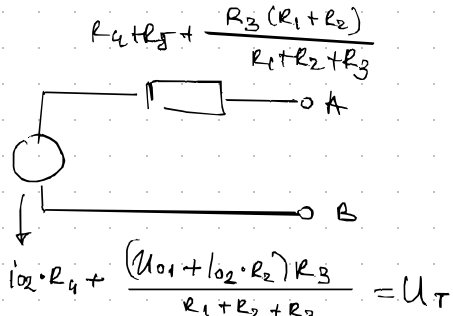 R4+R5+ R3(R1+R2)
R1+R2+R3
A
B
i02·R4+ (U01+I02·R2)R3 =UT
R1+R2+R3